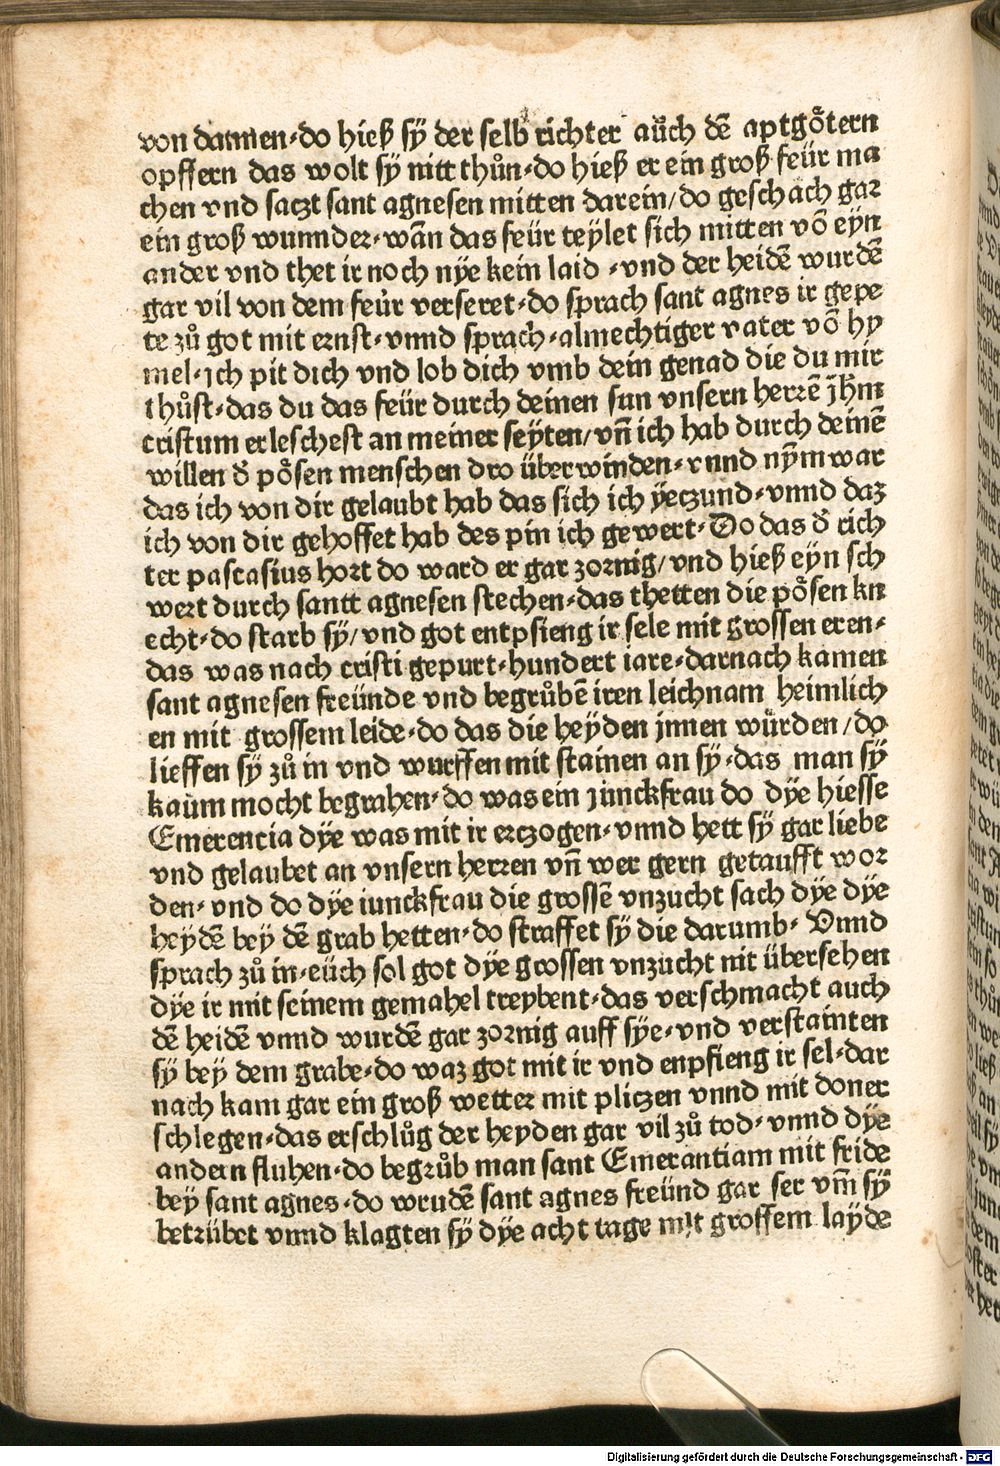 von dannen·do hieß sÿ der selb richter auch dē aptgötern
opffern das wolt sÿ nitt thůn·do hieß er ein groß feür ma
chen vnd saczt sant agnesen mitten darein/do geschach gar
ein groß wunnder·wan̄ das feür teÿlet sich mitten vō eÿn
ander vnd thet ir noch nÿe kein laid ·vnd der heidē wurdē
gar vil von dem feür verseret·do sprach sant agnes ir gepe
te zů got mit ernst·vnnd sprach·almechtiger vater vō hy
mel·ich pit dich vnd lob dich vmb dein genad die du mir
thůst·das du das feür durch deinen sun vnsern herrē ih̄m
cristum erleschest an meiner seÿten/vn̄ ich hab durch deinē
willen d̄ pösen menschen dro überwinden·vnnd nÿm war
das ich von dir gelaubt hab das sich ich ÿeczund·vnnd daz
ich von dir gehoffet hab des pin ich gewert·Do das d̄ rich
ter pascasius hort do ward er gar zornig/vnd hieß eÿn sch
wert durch santt agnesen stechen·das thetten die pösen kn
echt·do starb sÿ/vnd got entpfieng ir sele mit grossen eren·
das was nach cristi gepurt·hundert iare·darnach kamen
sant agnesen freünde vnd begrůbē iren leichnam heimlich
en mit grossem leide·do das die heÿden jnnen würden/do
lieffen sÿ zů in vnd wurffen mit stainen an sÿ·das man sÿ
kaum mocht begrahen·do was ein junckfrau do dÿe hiesse
Emerencia dÿe was mit ir erczogen·vnnd hett sÿ gar liebe
vnd gelaubet an vnsern herren vn̄ wer gern getaufft wor
den·vnd do dÿe iunckfrau die grossē vnzucht sach dÿe dÿe
heÿdē bey dē grab hetten·do straffet sÿ die darumb·Vnnd
sprach zů in·eüch sol got dÿe grossen vnzucht nit übersehen
dÿe ir mit seinem gemahel treybent·das verschmacht auch
dē heidē vnnd wurdē gar zornig auff sÿe·vnd verstainten
sÿ beÿ dem grabe·do waz got mit ir vnd enpfieng ir sel·dar
nach kam gar ein groß wetter mit pliczen vnnd mit doner
schlegen·das erschlůg der heyden gar vil zů tod·vnnd dÿe
andern fluhen·do begrůb man sant Emerantiam mit fride
beÿ sant agnes·do wrudē sant agnes freünd gar ser vm̄ sÿ
betrübet vnnd klagten sÿ dÿe acht tage mit grossem laÿde
Digitalisierung gefördert durch die Deutsche Forschungsgemeinschaft - DFG